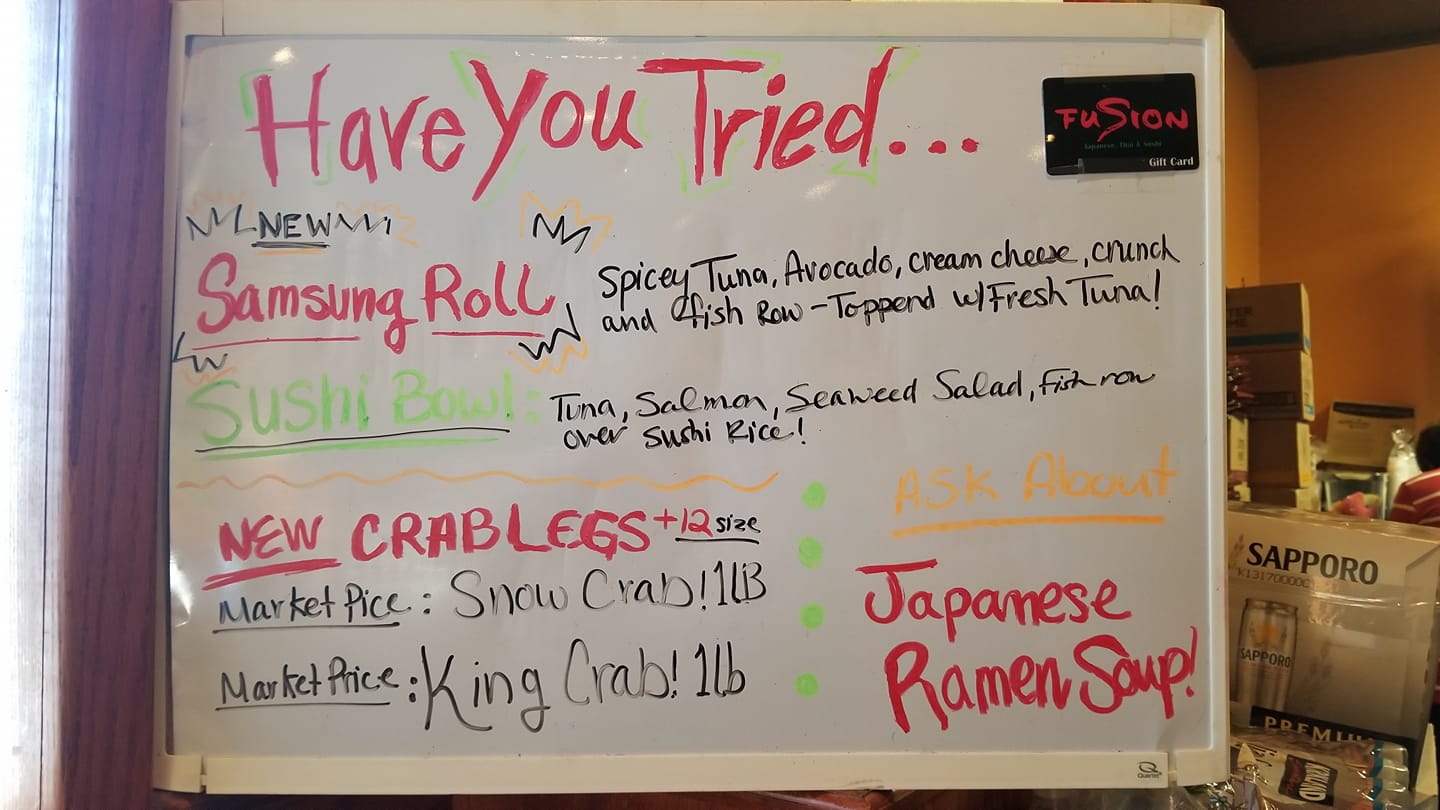 Have You Tried...
FUSION
Japanese, Thai & Sushi
Gift Card
NEW
Samsung Roll
Spicey Tuna, Avocado, cream cheese, crunch
and fish Row - Toppend w/ Fresh Tuna!
Sushi Bowl:
Tuna, Salmon, Seaweed Salad, Fish row
over sushi Rice!
NEW CRAB LEGS +12 size
Market Pice: Snow Crab! 1LB
Market Price: King Crab! 1lb
ASK About
Japanese
Ramen Soup!
Quartet
SAPPORO
K13170000C
SAPPORO
PREMIU